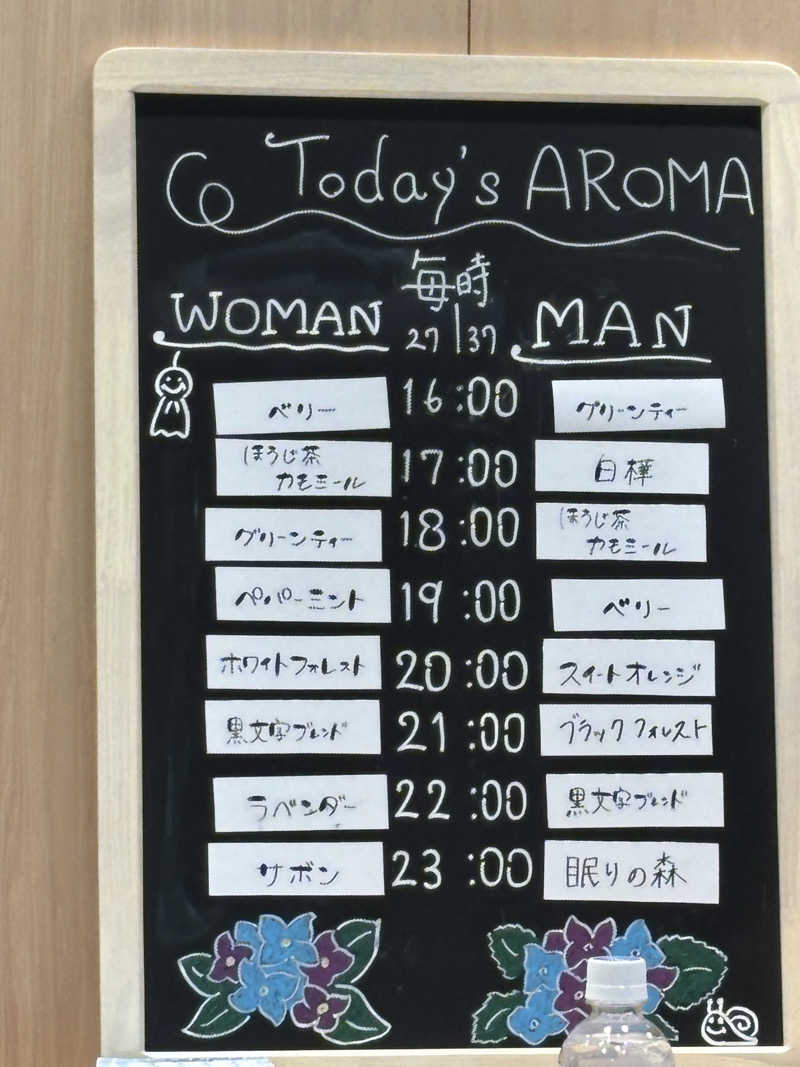 Today's AROMA
毎時
WOMAN 27 | 37 MAN
ベリー 16:00 グリーンティー
ほうじ茶
カモミール 17:00 白樺
グリーンティー 18:00 ほうじ茶
カモミール
ペパーミント 19:00 ベリー
ホワイトフォレスト 20:00 スイートオレンジ
黒文字ブレンド 21:00 ブラックフォレスト
ラベンダー 22:00 黒文字ブレンド
サボン 23:00 眠りの森